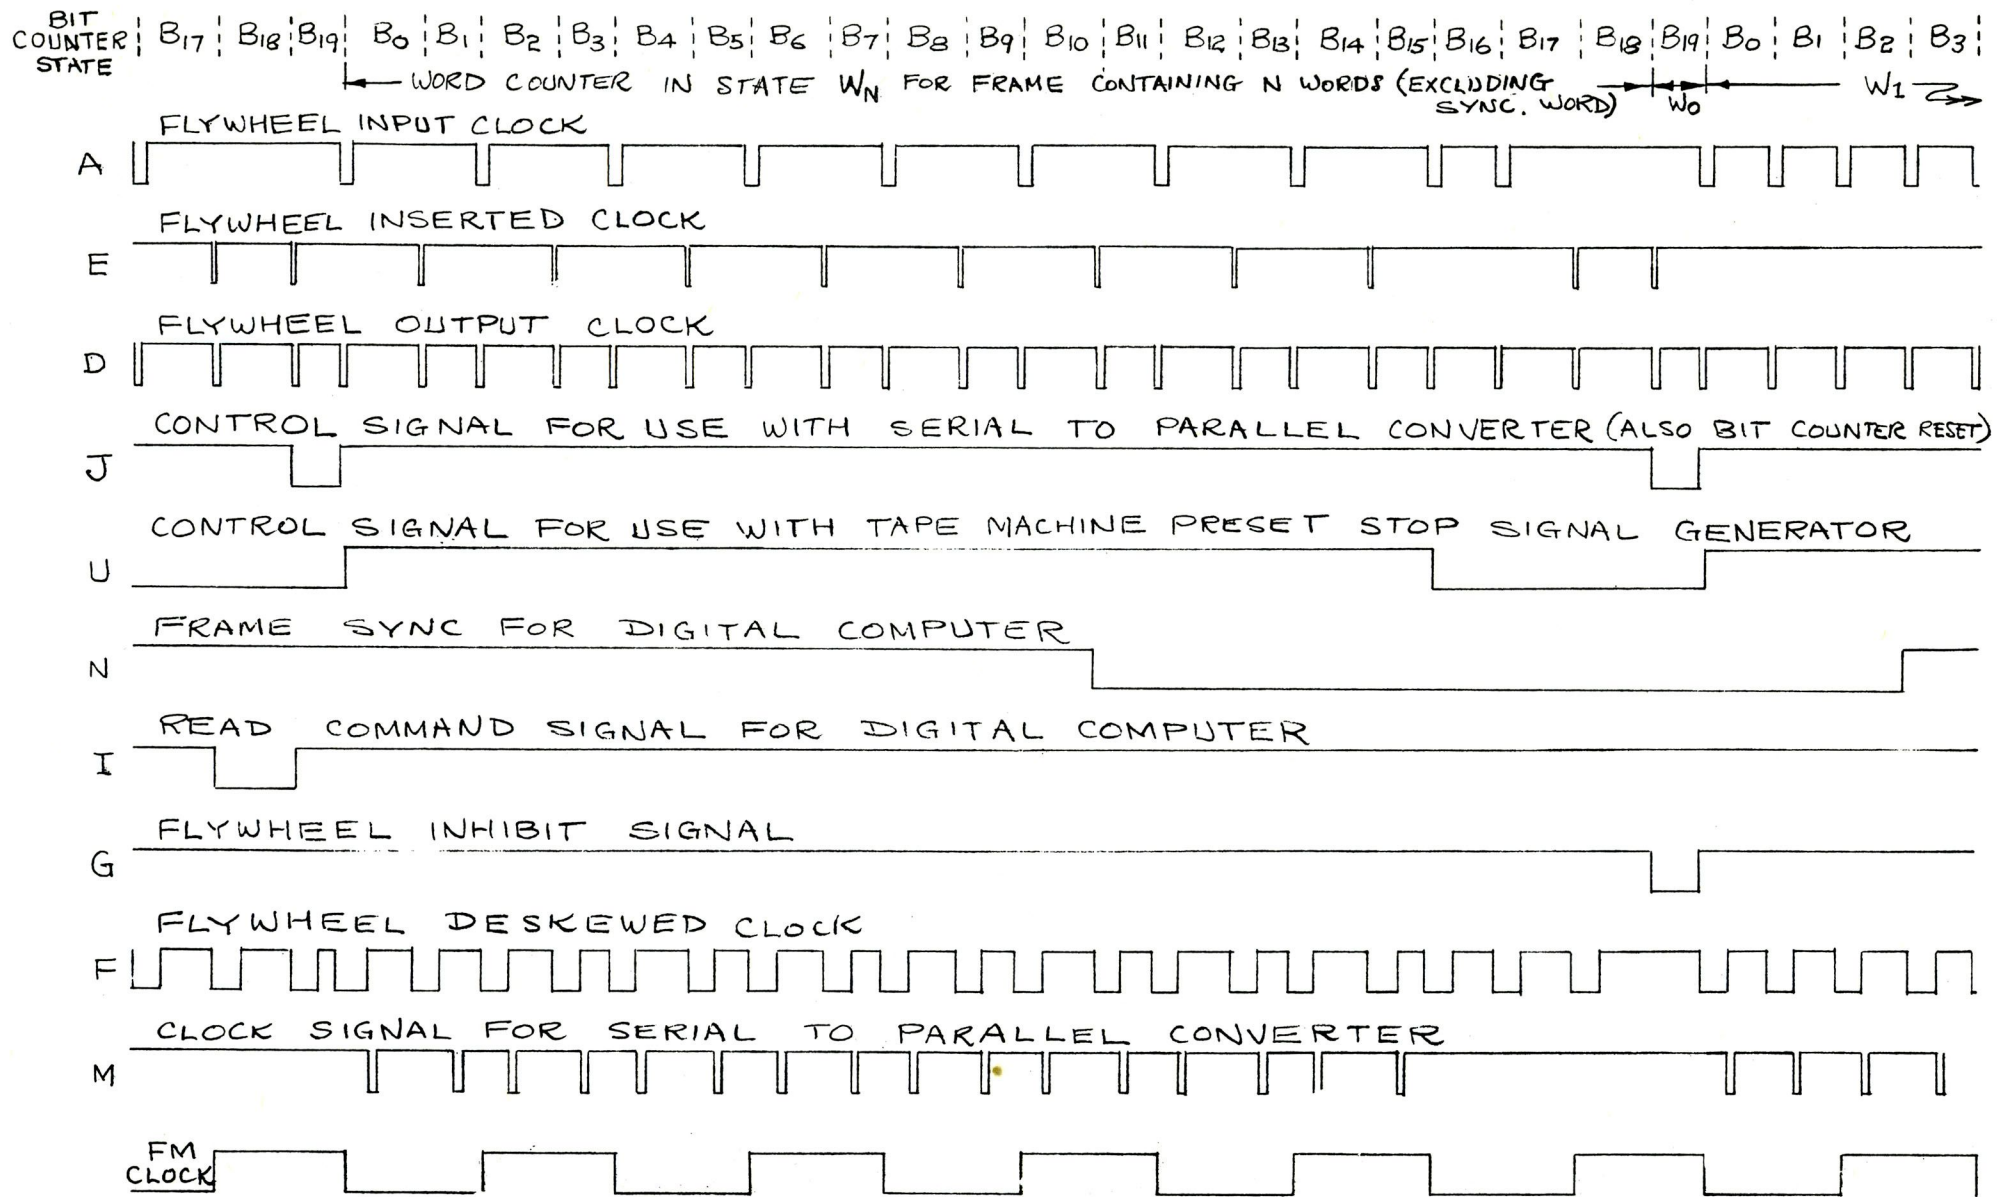 BIT COUNTER STATE B17 B18 B19 B0 B1 B2 B3 B4 B5 B6 B7 B8 B9 B10 B11 B12 B13 B14 B15 B16 B17 B18 B19 B0 B1 B2 B3
WORD COUNTER IN STATE WN FOR FRAME CONTAINING N WORDS (EXCLUDING SYNC. WORD) W0 W1
FLYWHEEL INPUT CLOCK
A
FLYWHEEL INSERTED CLOCK
E
FLYWHEEL OUTPUT CLOCK
D
CONTROL SIGNAL FOR USE WITH SERIAL TO PARALLEL CONVERTER (ALSO BIT COUNTER RESET)
J
CONTROL SIGNAL FOR USE WITH TAPE MACHINE PRESET STOP SIGNAL GENERATOR
U
FRAME SYNC FOR DIGITAL COMPUTER
N
READ COMMAND SIGNAL FOR DIGITAL COMPUTER
I
FLYWHEEL INHIBIT SIGNAL
G
FLYWHEEL DESKEWED CLOCK
F
CLOCK SIGNAL FOR SERIAL TO PARALLEL CONVERTER
M
FM
CLOCK